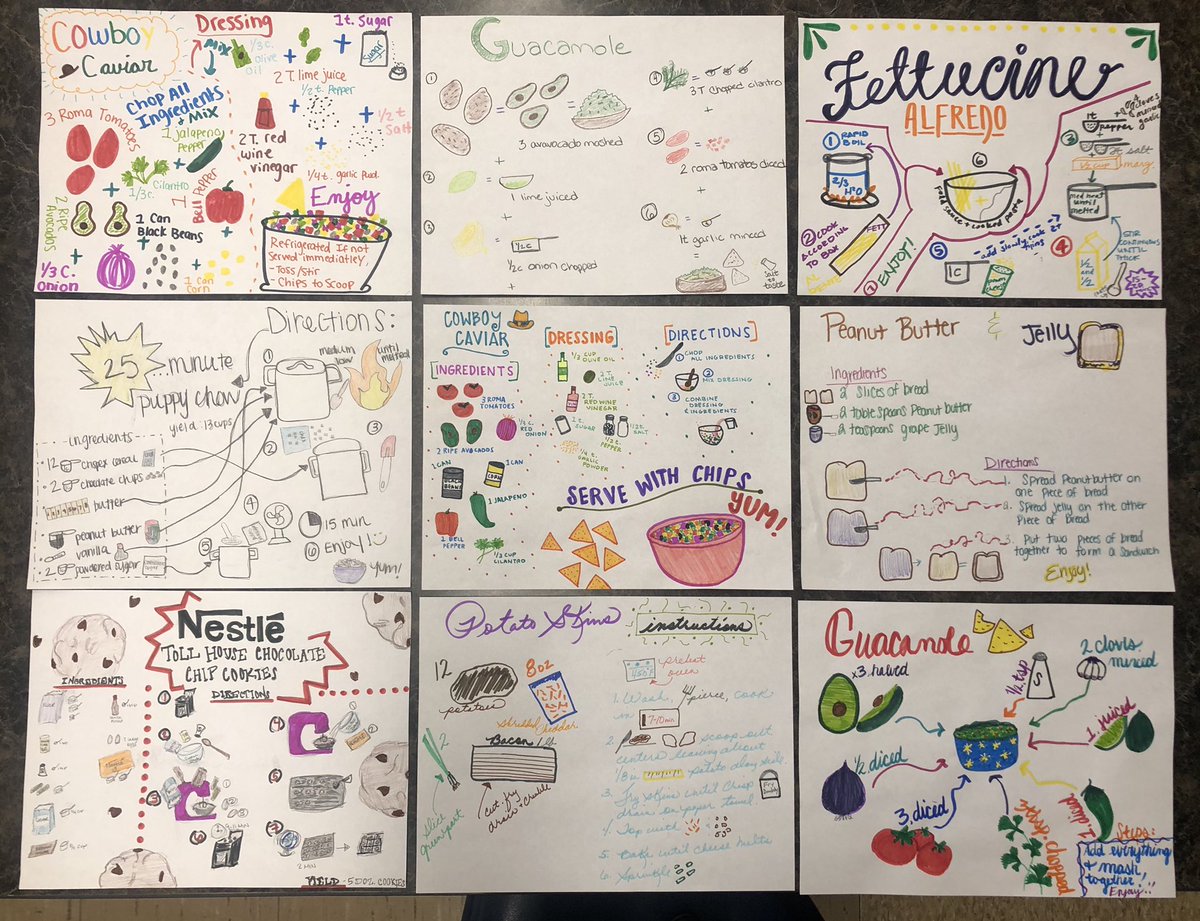 Cowboy
Caviar
Dressing
Mix
1/3 c. olive oil
1t. Sugar
Sugar
2 T. lime juice
1/2 t. Pepper
1/2 t
Salt
2 T. red
wine
vinegar
1/4 t. garlic pwd.
Chop All
Ingredients
+ Mix
3 Roma Tomatoes
1 jalapeño
Pepper
1/3 c.
Cilantro
1 Bell Pepper
2 Ripe
Avocados
1 Can
Black Beans
1/3 C.
Onion
1 Can
Corn
Enjoy
Refrigerated If not
Served immediatley.
-Toss/Stir
Chips to Scoop
Guacamole
1
3 avawocado mashed
2
1 lime juiced
3
1/2c
1/2c onion chopped
4
3 T chopped cilantro
5
2 roma tomatos diced
6
1t garlic minced
Salt
to
taste
Fettucine
ALFREDO
1 RAPID
BOIL
2/3
H2O
2 COOK
ACCORDING
TO BOX
FETT
7 ENJOY!
6
Fold sauce + cooked pasta
3
1t
pepper
salt
1/2 cup marg
med heat
until
melted
STIR
CONTINUOUS
UNTIL
THICK
4
1/2
and
1/2
5
add slowly cook
1C
25 minute
puppy chow
yield: 13 cups
Directions:
1
medium
low
until
melted
2
3
4
15 min
5
6 Enjoy!
Yum!
ingredients
12 chopex cereal
2 chocolate chips
butter
peanut butter
vanilla
2 powdered sugar
COWBOY
CAVIAR
INGREDIENTS
3 ROMA
TOMATOES
1/3 C.
RED ONION
2 RIPE AVOCADOS
1 CAN
BLACK BEANS
1 CAN
CORN
1 JALAPENO
1 BELL
PEPPER
1/3 CUP
CILANTRO
DRESSING
1/3 CUP
OLIVE OIL
2 T.
LIME
JUICE
2 T.
RED WINE
VINEGAR
1 t.
SUGAR
1/2 t.
PEPPER
1/2 t.
SALT
1/4 t.
GARLIC
POWDER
DIRECTIONS
1 CHOP
ALL INGREDIENTS
2
MIX DRESSING
3 COMBINE
DRESSING
& INGREDIENTS
SERVE WITH CHIPS
YUM!
Peanut Butter & Jelly
Ingredients
2 slices of bread
2 tablespoons Peanut butter
2 teaspoons grape Jelly
Directions
1. Spread Peanut butter on
one piece of bread
2. Spread jelly on the other
piece of Bread
3. Put two pieces of bread
together to form a Sandwich
Enjoy!
Nestlé
TOLL HOUSE CHOCOLATE
CHIP COOKIES
INGREDIENTS
DIRECTIONS
1
2
3
4
5
6
7
9-11 MIN
2 MIN
YIELD - 5 DOZ. COOKIES
Potato Skins
12
potatoes
8oz
Shredded Cheddar
2
slice
green part
Bacon 1 lb
cut, fry
drain + crumble
instructions
450°F
preheat
oven
1. Wash, pierce, cook
in
7-10min
2. scoop out
centers leaving about
1/8 in potato along skill.
3. Fry skins until crisp
drain on paper towel.
4. Top with
5. Bake until cheese melts
6. Sprinkle
Guacamole
x3. halved
1/2 tsp
S
2 clovis
minced
1. juiced
1/2. diced
3. diced
1 diced
Steps:
Add everything
+ mash
together!
Enjoy!!